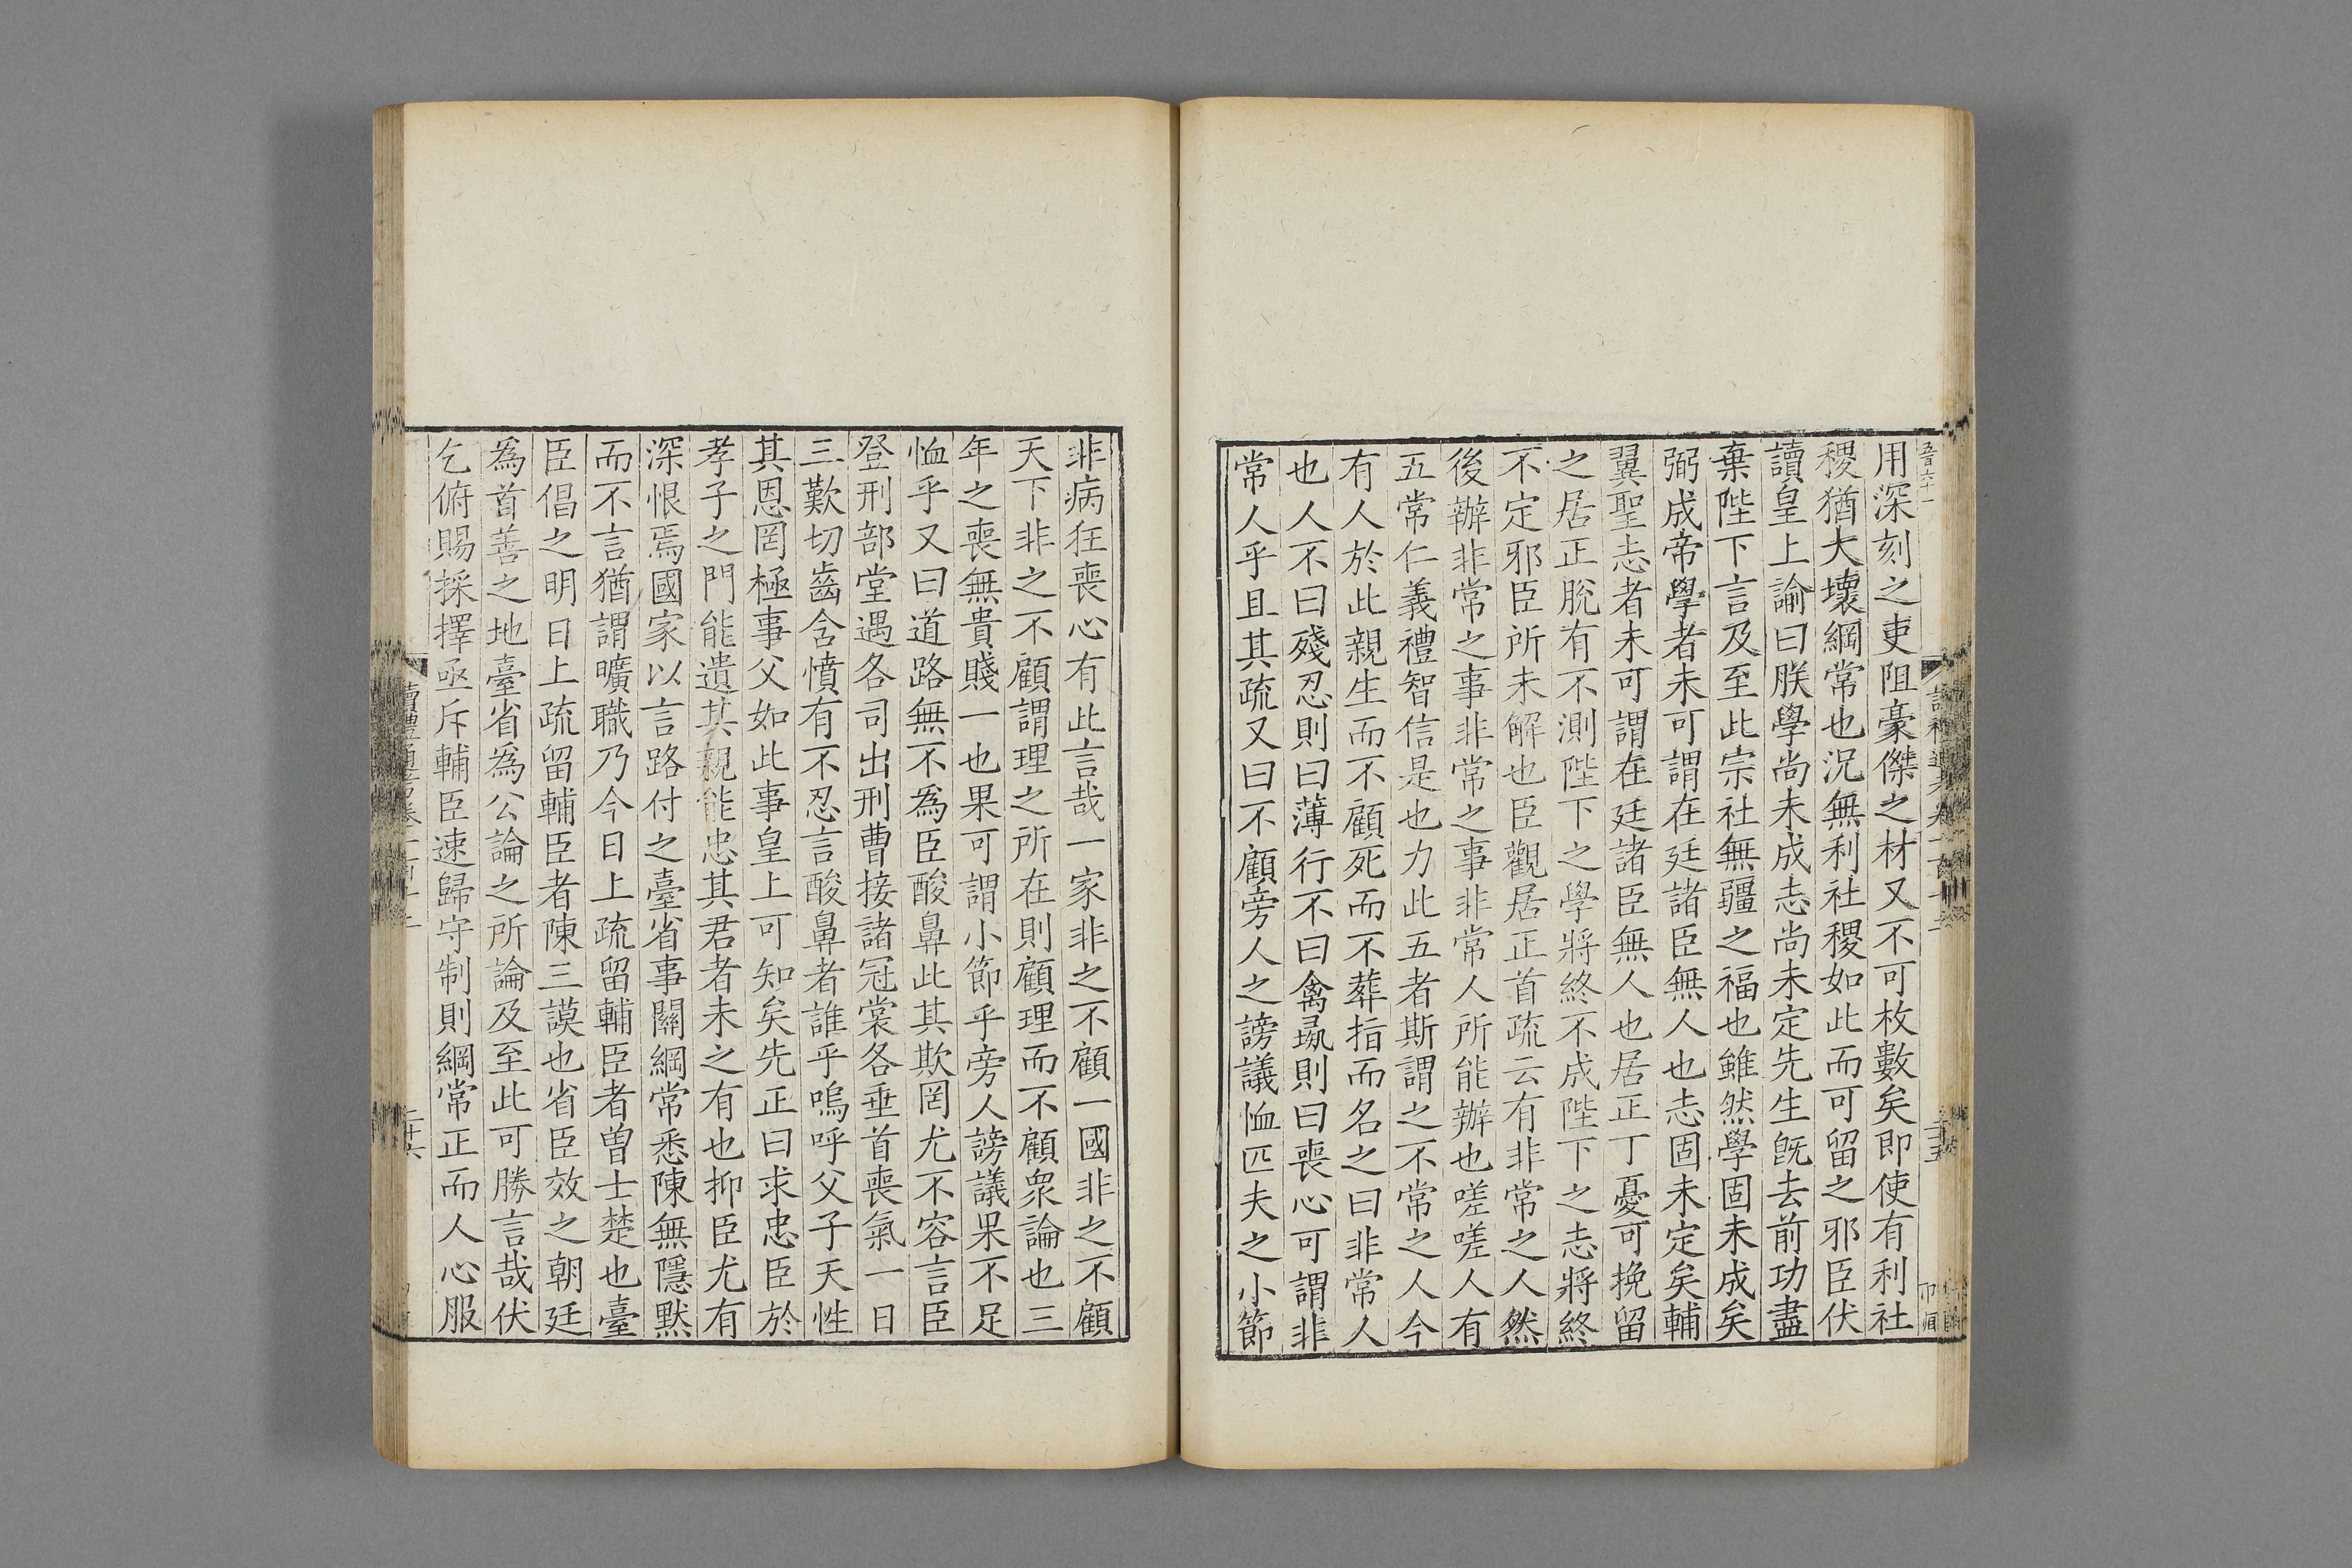 用深刻之吏阻豪傑之材又不可枚數矣即使有利社
稷猶大壞綱常也況無利社稷如此而可留之邪臣伏
讀皇上諭曰朕學尚未成志尚未定先生旣去前功盡
棄陛下言及至此宗社無疆之福也雖然學固未成矣
弼成帝學者未可謂在廷諸臣無人也志固未定矣輔
翼聖志者未可謂在廷諸臣無人也居正丁憂可挽留
之居正脫有不測陛下之學將終不成陛下之志將終
不定邪臣所未解也臣觀居正首疏云有非常之人然
後辦非常之事非常之事非常人所能辦也嗟嗟人有
五常仁義禮智信是也力此五者斯謂之不常之人今
有人於此親生而不顧死而不葬指而名之曰非常人
也人不曰殘忍則曰薄行不曰禽彘則曰喪心可謂非
常人乎且其疏又曰不顧旁人之謗議恤匹夫之小節
非病狂喪心有此言哉一家非之不顧一國非之不顧
天下非之不顧謂理之所在則顧理而不顧衆論也三
年之喪無貴賤一也果可謂小節乎旁人謗議果不足
恤乎又曰道路無不爲臣酸鼻此其欺罔尤不容言臣
登刑部堂遇各司出刑曹接諸冠裳各垂首喪氣一日
三歎切齒含憤有不忍言酸鼻者誰乎嗚呼父子天性
其恩罔極事父如此事皇上可知矣先正曰求忠臣於
孝子之門能遺其親能忠其君者未之有也抑臣尤有
深恨焉國家以言路付之臺省事關綱常悉陳無隱黙
而不言猶謂曠職乃今日上疏留輔臣者曽士楚也臺
臣倡之明日上疏留輔臣者陳三謨也省臣效之朝廷
爲首善之地臺省爲公論之所論及至此可勝言哉伏
乞俯賜採擇亟斥輔臣速歸守制則綱常正而人心服